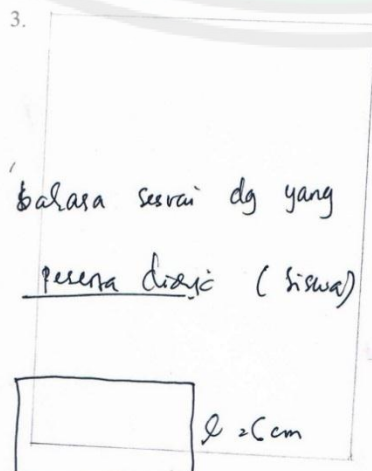 3.
bahasa sesuai dg yang
peserta didik (siswa)
l = 6 cm